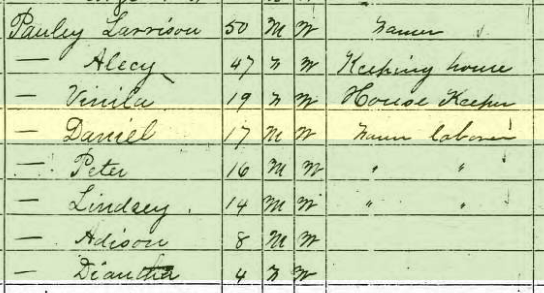 Pauley Larrison 50 M W Farmer
— Alecy 47 F W Keeping house
— Vinila 19 F W House Keeper
— Daniel 17 M W Farm laborer
— Peter 16 M W " "
— Lindsey 14 M W " "
— Adison 8 M W
— Diantha 4 F W